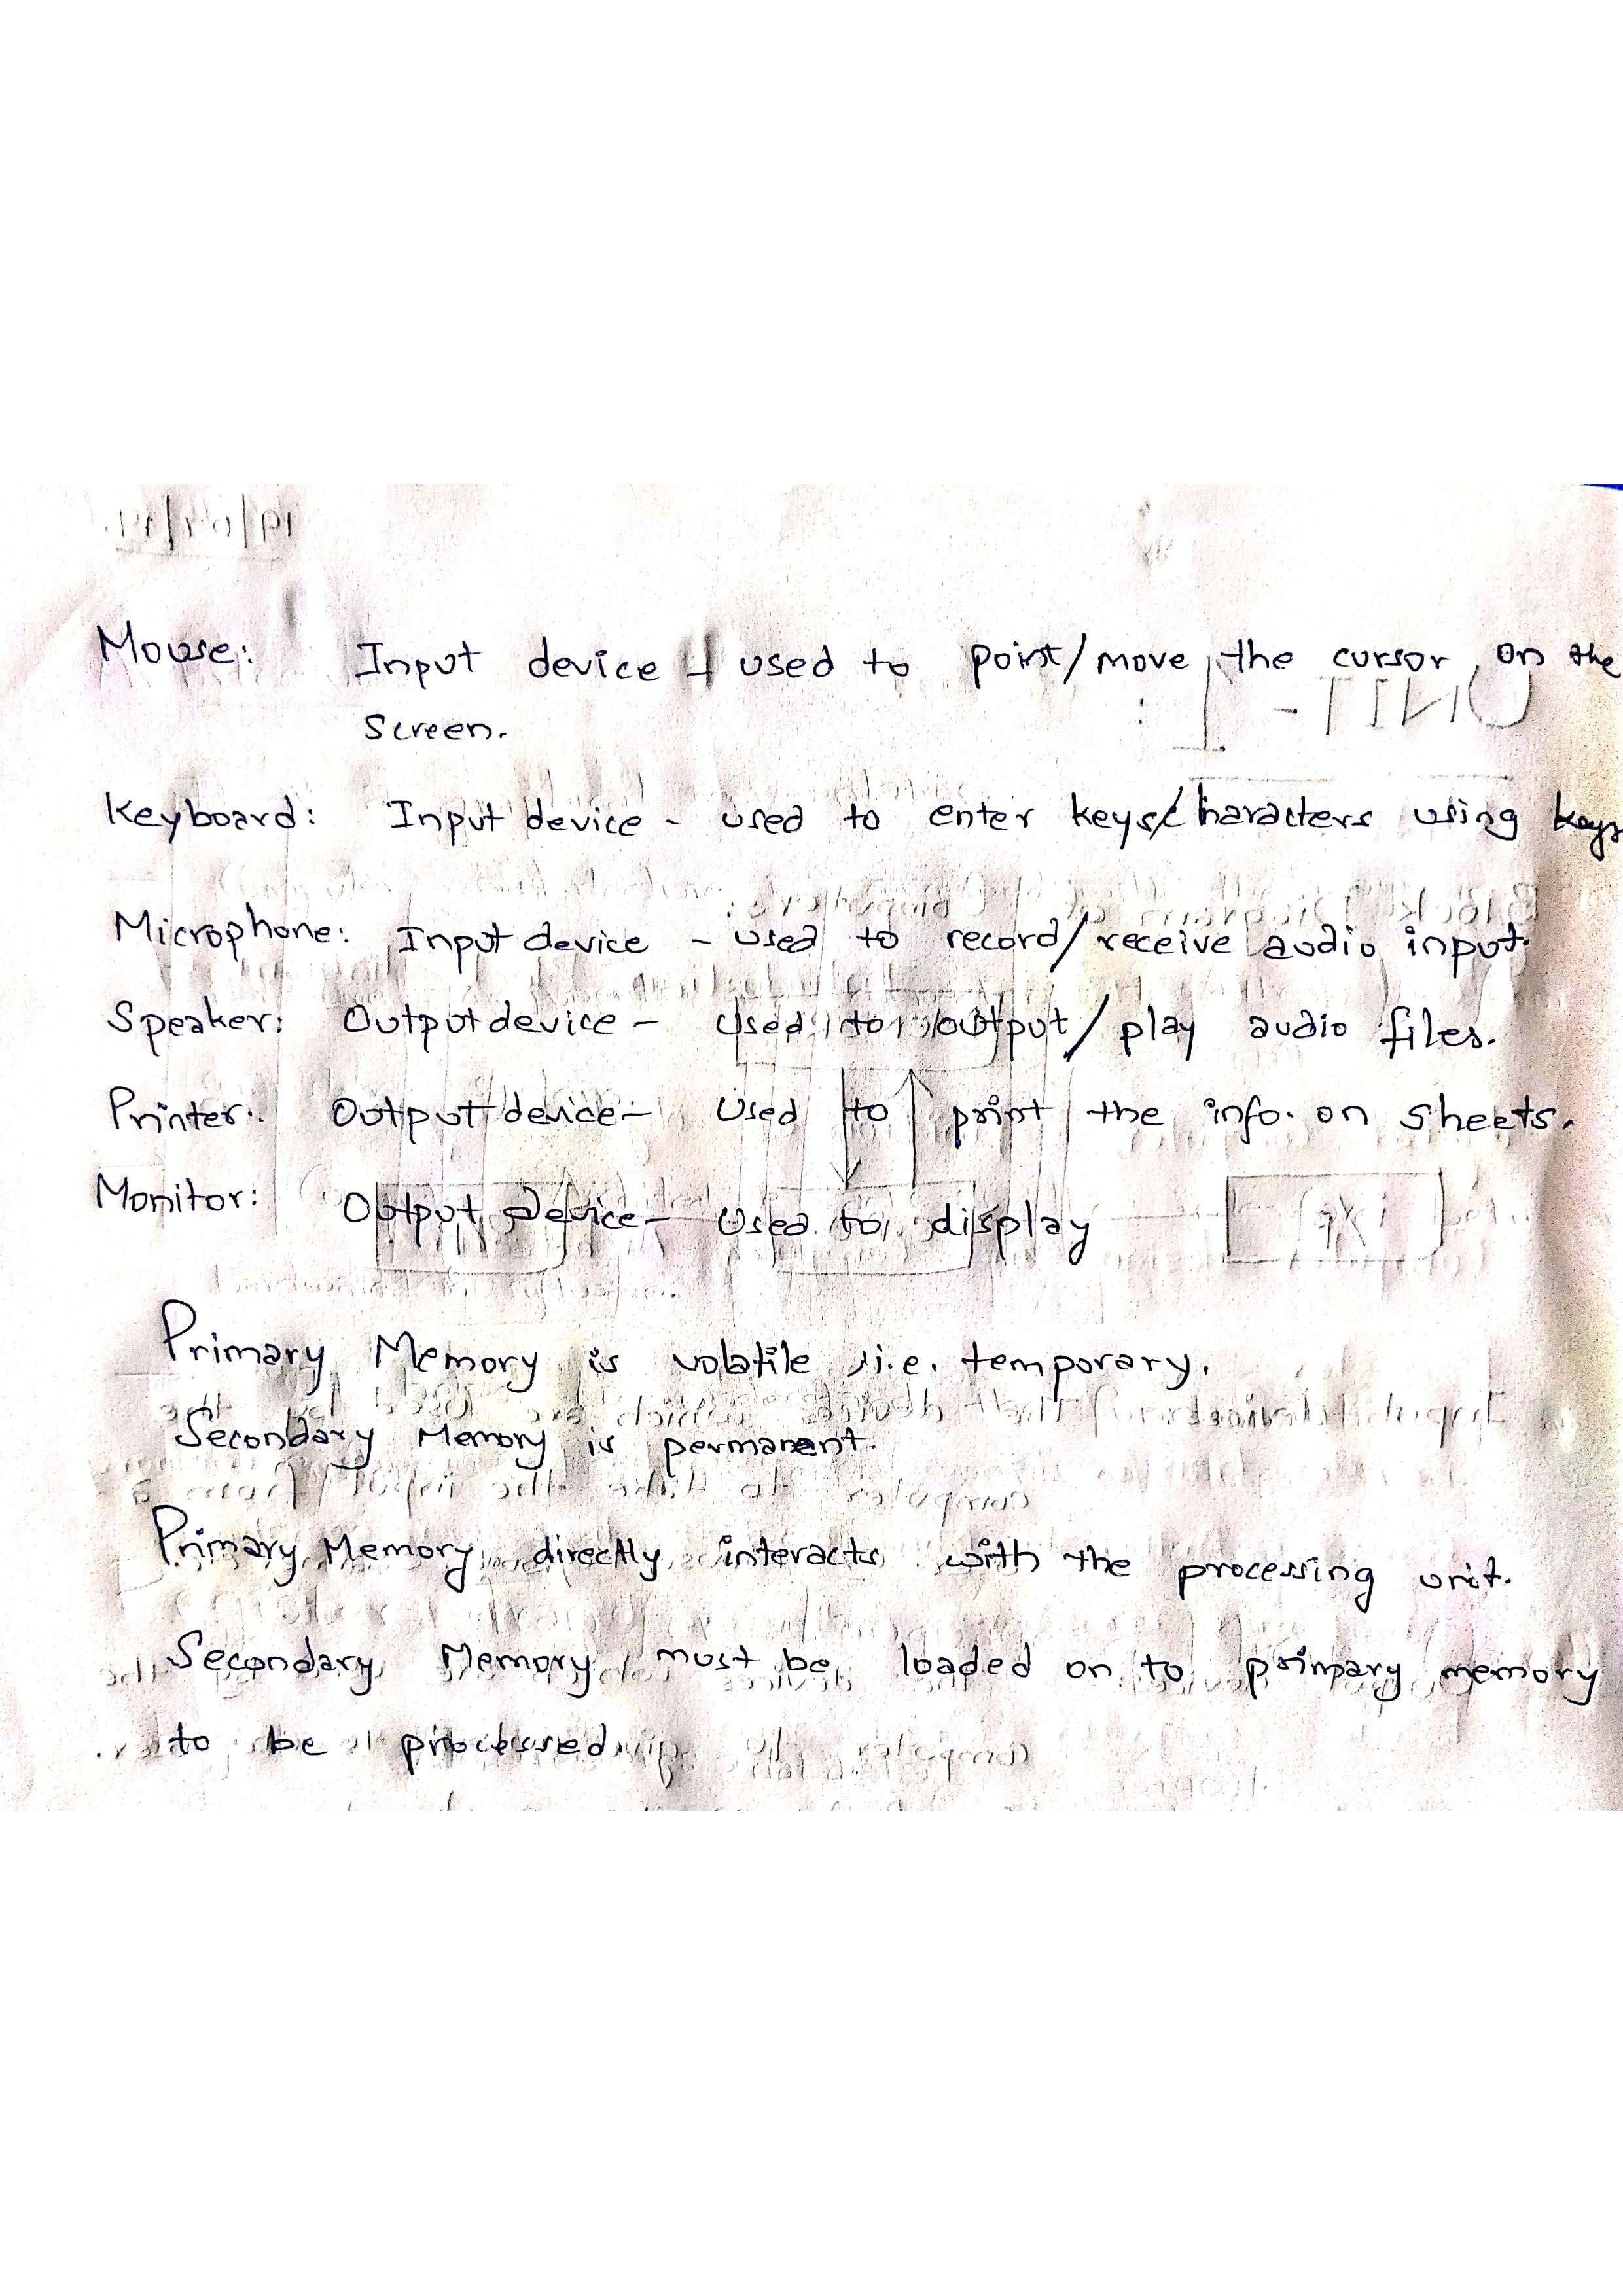 Mouse: Input device - used to point/move the cursor on the
screen.
Keyboard: Input device - used to enter keys/characters using keys
Microphone: Input device - used to record/receive audio input.
Speaker: Output device - used to output/play audio files.
Printer: Output device - used to print the info. on sheets.
Monitor: Output device - used to display
Primary Memory is volatile i.e. temporary.
Secondary Memory is permanent.
Primary Memory directly interacts with the processing unit.
Secondary Memory must be loaded on to primary memory
to be processed.